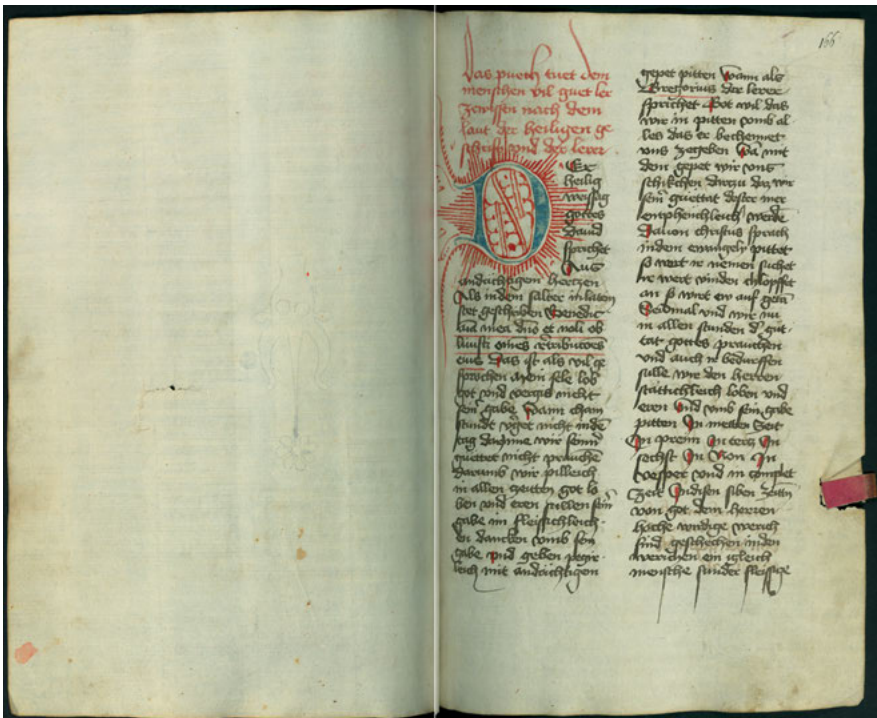 166
Das puech tuet dem
menschen vil guet ler
zewissen nach dem
laut der heiligen ge
schrift vnd der lerer
Der
heilig
weissag
gottes
dauid
sprichet
Aus
andachtigem hertzen
Als in dem salter in latein
stet geschriben Benedic
aia mea dno et noli ob
liuisci omnes retributiones
eius Das ist als vil ge
sprochen Mein sele lob
got vnd vergis nicht
seiner gabe Wann chain
stundt noch inde
tag wir seinr
guettet nicht prauchen
darumb wir pilleich
in allen zeitten got lo
ben vnd eren sullen sein
gabe im fleissichleich
en dancken vmb sein
gabe vnd geben
leich mit andachtigen
gepet pitten Wann als
Gregorius der lerer
sprichet Got wil das
wir in pitten vmb al
les das er bechennet
vns zegeben Wan mit
dem gepet wir vns
schikchen darczu daz wir
seinr guettat dester mer
emphenchleich werde
Dauon christus sprach
in dem ewangely pittet
so wert ir nemen suchet
ir wert vinden chlopffet
an so wirt ew auf getan
Seidmal vnd wir nu
in allen stunden der gut
tat gottes prauchen
vnd auch ir bedurffen
sulle wir den herren
statichleich loben vnd
eren Vnd vmb sein gabe
pitten In metten Zeit
In preim In tercz In
sechst In Non In
Vesper vnd in complet
Zeit In disen siben zeitn
von got dem herren
hoche wirdige werich
sind geschechen in den
werichen ein igleich
mensche sunder fleissige